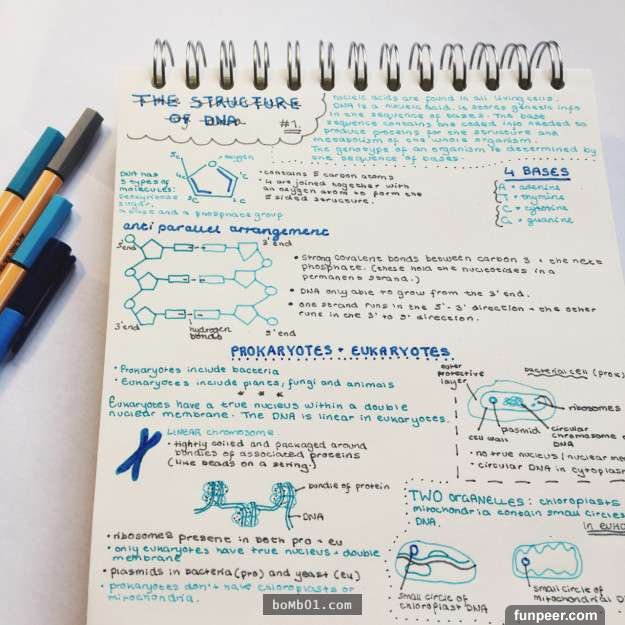 THE STRUCTURE
OF DNA
#1.
nucleic acids are found in all living cells.
DNA is a nucleic acid. is stores genetic info
in the sequence of bases. The base
sequence contains the coded info needed to
produce proteins for the structure and
metabolism of the whole organism.
The genotype of an organism is determined by
the sequence of bases.
DNA has
3 types of
molecules:
deoxyribose
sugar,
a base and a phosphate group
oxygen
5C
4C
'C
3C
2C
• contains 5 carbon atoms
• 4 are joined together with
an oxygen atom to form the
5 sided structure.
4 BASES
A • adenine
T • thymine
C • cytosine
G • guanine
anti parallel arrangement
5'end
3'end
3'end
hydrogen
bonds
5'end
• strong covalent bonds between carbon 3 + the next
phosphate. (these hold the nucleotides in a
permanent strand.)
• DNA only able to grow from the 3' end.
• one strand runs in the 5'- 3' direction + the other
runs in the 3' to 5' direction.
PROKARYOTES + EUKARYOTES
• Prokaryotes include bacteria
• Eukaryotes include plants, fungi and animals
Eukaryotes have a true nucleus within a double
nuclear membrane. The DNA is linear in eukaryotes.
LINEAR chromosome
• tightly coiled and packaged around
bundles of associated proteins
(like beads on a string)
bundle of protein
DNA
• ribosomes present in both pro + eu
• only eukaryotes have true nucleus + double
membrane
• plasmids in bacteria (pro) and yeast (eu)
• prokaryotes don't have chloroplasts or
mitochondria.
outer
protective
layer
bacterial cell (prok
ribosomes
plasmid
cell wall
circular
chromosome
DNA
• no true nucleus (nuclear me
• circular DNA in cytoplasm
TWO organelles: chloroplasts
mitochondria contain small circles
DNA.
in euk
small circle of
chloroplast DNA
small circle of
mitochondrial D
boMb01.com
funpeer.com